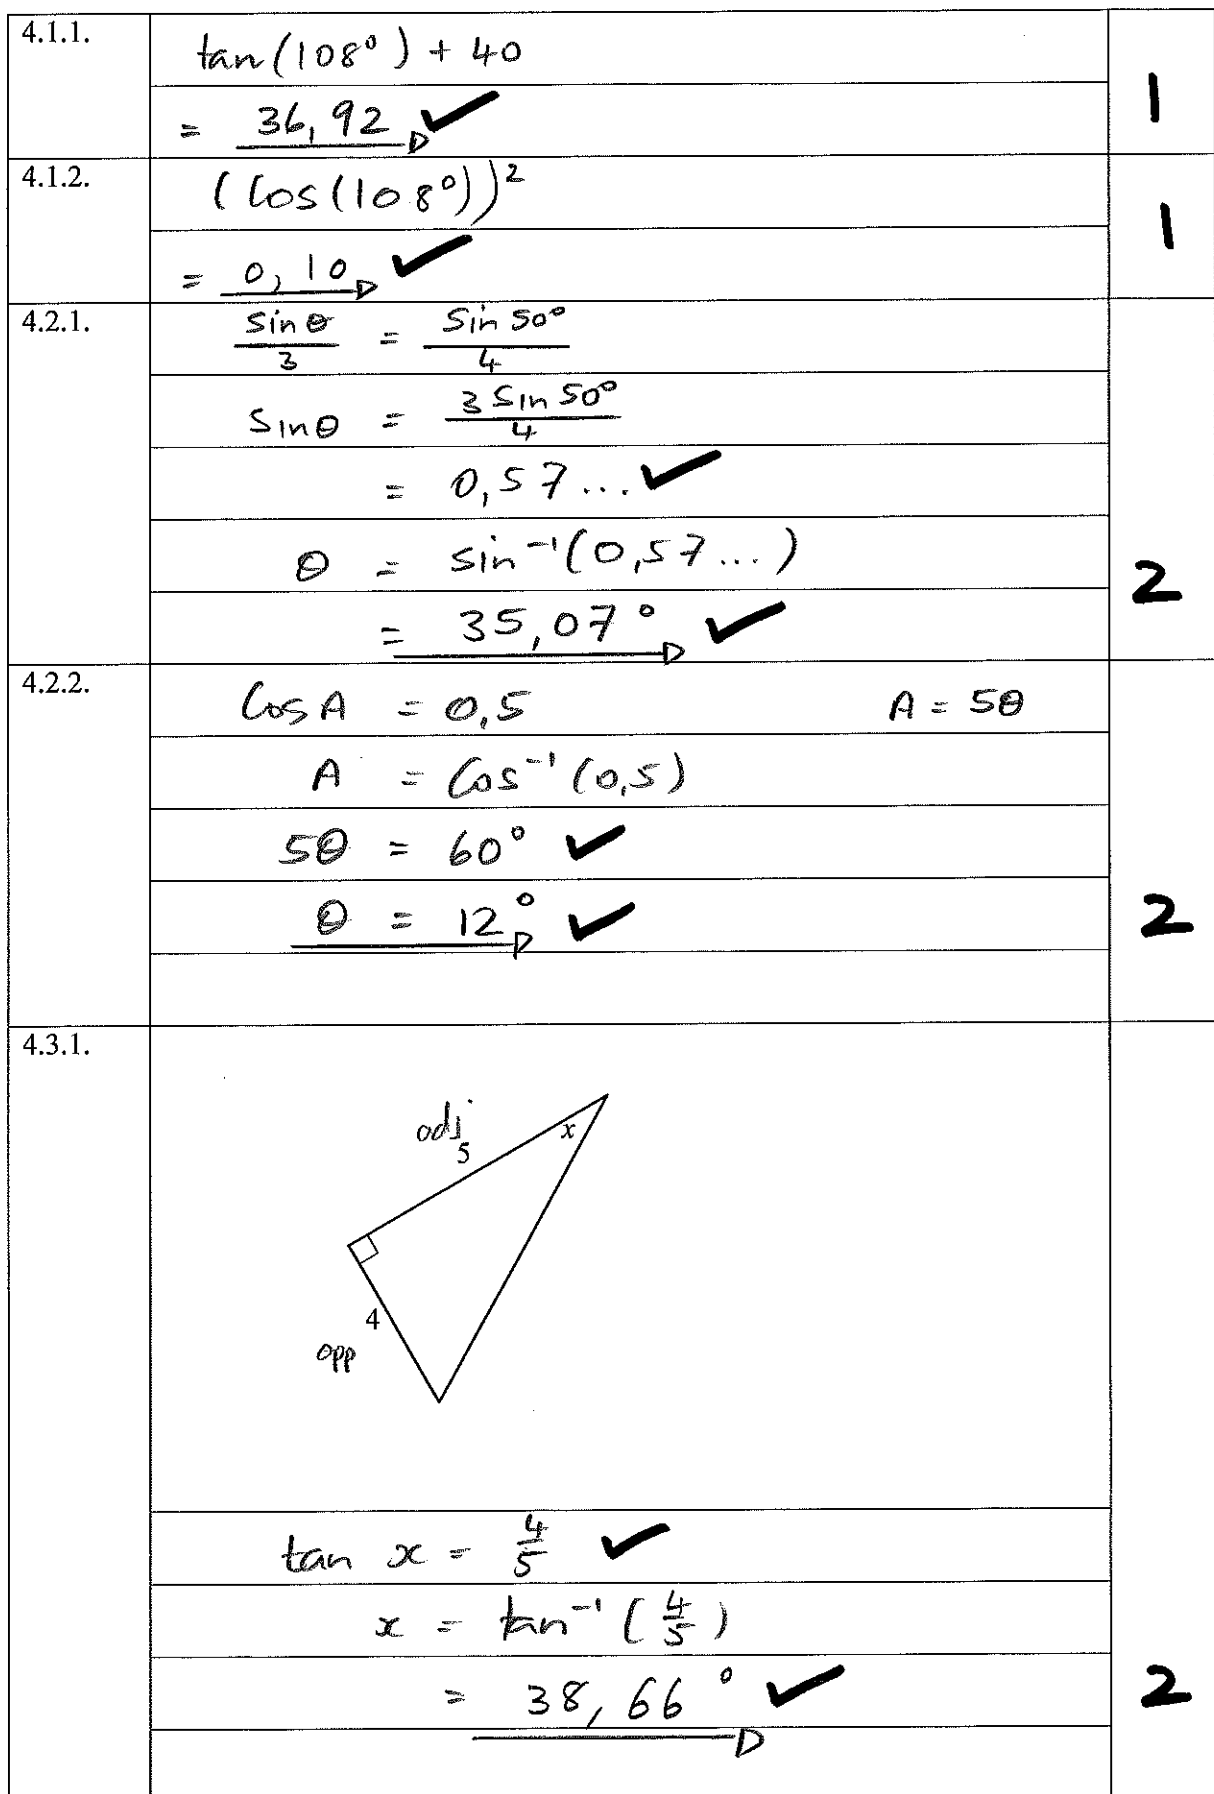 4.1.1.
tan(108°) + 40
= 36,92 ✓
1
4.1.2.
(Cos(108°))²
= 0,10 ✓
1
4.2.1.
sinθ/3 = Sin 50°/4
Sinθ = 3 Sin 50°/4
= 0,57... ✓
θ = sin⁻¹(0,57...)
= 35,07° ✓
2
4.2.2.
Cos A = 0,5 A = 5θ
A = Cos⁻¹(0,5)
5θ = 60° ✓
θ = 12° ✓
2
4.3.1.
adj
5
x
4
opp
tan x = 4/5 ✓
x = tan⁻¹(4/5)
= 38,66° ✓
2